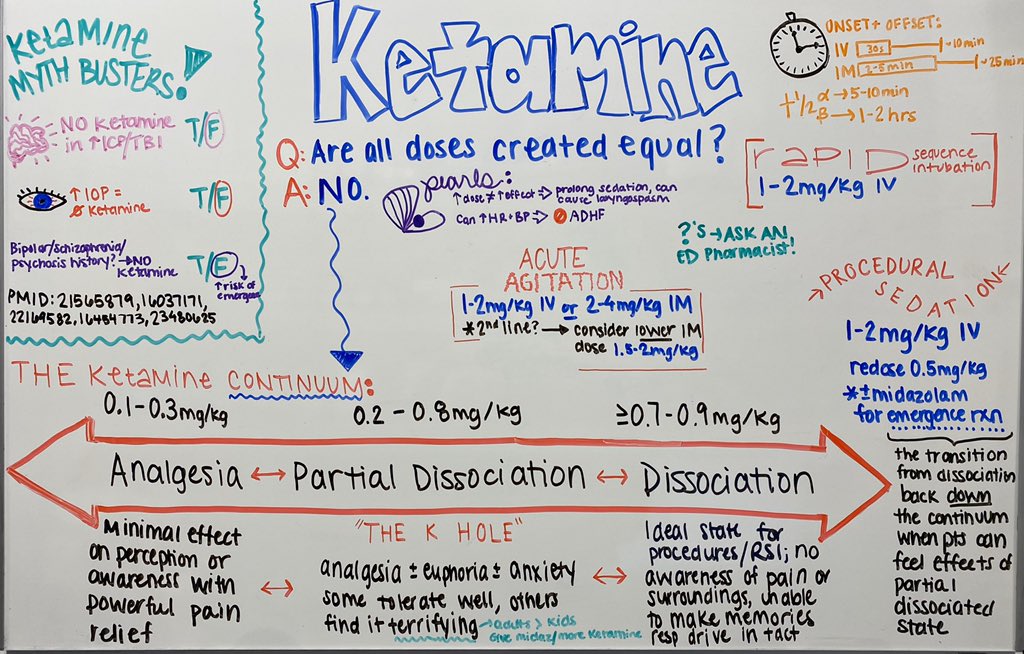 Ketamine
MYTH BUSTERS!
NO Ketamine
in ↑ICP/TBI
T/F
↑ IOP =
Ketamine
T/F
Bipolar/schizophrenia/
psychosis history? → NO
Ketamine
T/F
↑ risk of
PMID: 21565879, 16037171,
22169582, 16454773, 23480625
Ketamine
Q: Are all doses created equal?
A: NO.
pearls:
↑ dose ≠ ↑ effect ⇒ prolong sedation, can
cause laryngospasm
Can ↑ HR + BP ⇒ ADHF
?'s → ASK AN
ED Pharmacist!
ONSET + OFFSET:
IV 30s ~10 min
IM 2-5 min ~25 min
t 1/2 α → 5-10 min
β → 1-2 hrs
[RAPID sequence
intubation]
1-2mg/kg IV
ACUTE
AGITATION
1-2mg/kg IV or 2-4mg/kg IM
*2nd line? → consider lower IM
dose 1.5-2mg/kg
→PROCEDURAL
SEDATION←
1-2mg/kg IV
redose 0.5mg/kg
*± midazolam
for emergence rxn
the transition
from dissociation
back down
the continuum
when pts can
feel effects of
partial
dissociated
state
THE Ketamine CONTINUUM:
0.1-0.3mg/kg 0.2-0.8mg/kg ≥0.7-0.9mg/kg
Analgesia ↔ Partial Dissociation ↔ Dissociation
Minimal effect
on perception or
awareness with
powerful pain
relief
↔
"THE K HOLE"
analgesia ± euphoria ± anxiety
some tolerate well, others
find it terrifying → adults > kids
Give midaz/more Ketamine
↔
Ideal state for
procedures/RSI; no
awareness of pain or
surroundings, unable
to make memories
resp drive in tact